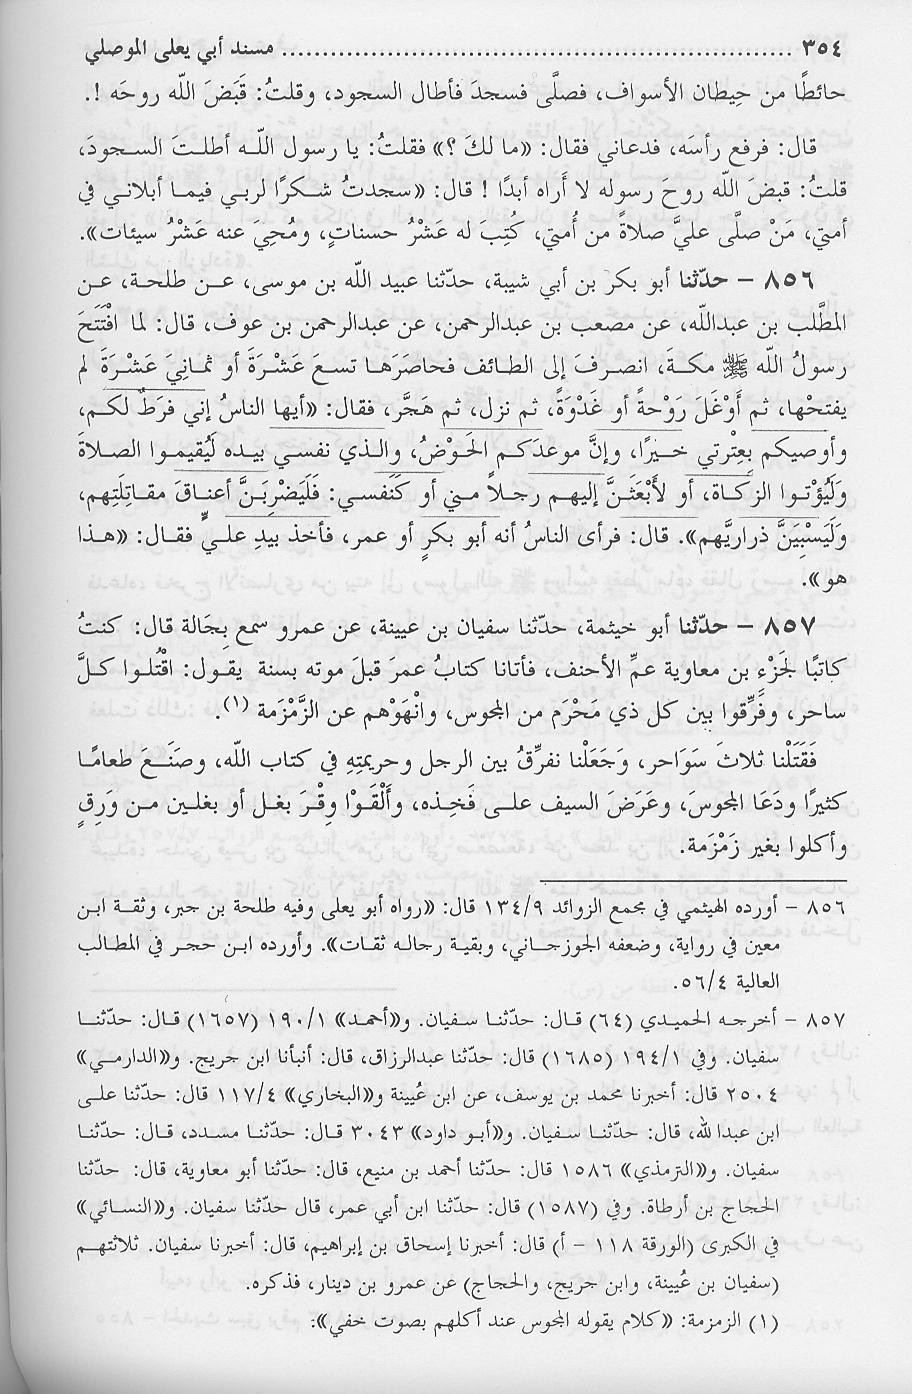 ٣٥٤ ................................................................ مسند أبي يعلى الموصلي
حائطًا من حِيطان الأسواف، فصلَّى فسجدَ فأطال السجود، وقلتُ: قَبَضَ اللّه روحَه !.
قال: فرفع رأسَه، فدعاني فقال: «ما لكَ ؟» فقلتُ: يا رسول اللّه أطلتَ السجودَ،
قلتُ: قبضَ اللّه روحَ رسوله لا أَراه أبدًا ! قال: «سجدتُ شكرًا لربي فيما أبلاني في
أمتي، مَنْ صلَّى عليَّ صلاةً من أُمتي، كُتِبَ له عَشْرُ حسناتٍ، ومُحِيَ عنه عَشْرُ سيئات».
٨٥٦ – حدّثنا أبو بكر بن أبي شيبة، حدّثنا عبيد اللّه بن موسى، عن طلحة، عن
المطَّلب بن عبداللّه، عن مصعب بن عبدالرحمن، عن عبدالرحمن بن عوف، قال: لما افْتَتَحَ
رسولُ اللّه ﷺ مكةَ، انصرفَ إلى الطائف فحاصَرَها تسعَ عَشْرَةَ أو ثمانِيَ عَشْرَةَ لم
يفتحْها، ثم أَوْغَلَ رَوْحةً أو غَدْوَةً، ثم نزل، ثم هَجَّر، فقال: «أيها الناسُ إني فَرَطٌ لكم،
وأوصيكم بِعِتْرتي خيرًا، وإنَّ موعدَكم الحَوْضُ، والذي نفسي بيده لَيُقيموا الصلاةَ
وَلَيُؤْتوا الزكاة، أو لأَبْعَثَنَّ إليهم رجلاً مني أو كَنَفسي: فَلَيَضْرِبَنَّ أعناقَ مقاتِلتِهم،
وَلَيَسْبِيَنَّ ذراريَّهم». قال: فرأى الناسُ أنه أبو بكرٍ أو عمر، فأخذ بيدِ عليٍّ فقال: «هذا
هو».
٨٥٧ – حدّثنا أبو خيثمة، حدّثنا سفيان بن عيينة، عن عمرو سمع بِجَالة قال: كنتُ
كاتبًا لجَزْءِ بن معاوية عمِّ الأحنف، فأتانا كتابُ عمرَ قبلَ موته بسنة يقول: اقْتُلوا كلَّ
ساحر، وفَرِّقوا بين كل ذي مَحْرَم من المجوس، وانْهَوْهم عن الزَّمْزَمة (١).
فَقَتَلْنا ثلاثَ سَوَاحر، وَجَعَلْنا نفرِّقُ بين الرجل وحريمتِهِ في كتاب اللّه، وصنَعَ طعامًا
كثيرًا ودَعَا المجوسَ، وعَرَضَ السيف على فَخِذه، وأَلْقَوْا وِقْرَ بغل أو بغلين من وَرِقٍ
وأكلوا بغير زَمْزَمة.
٨٥٦ – أورده الهيثمي في مجمع الزوائد ١٣٤/٩ قال: «رواه أبو يعلى وفيه طلحة بن جبر، وثقة ابن
معين في رواية، وضعفه الجوزجاني، وبقية رجاله ثقات». وأورده ابن حجر في المطالب
العالية ٥٦/٤.
٨٥٧ – أخرجه الحميدي (٦٤) قال: حدّثنا سفيان. و«أحمد» ١٩٠/١ (١٦٥٧) قال: حدّثنا
سفيان. وفي ١٩٤/١ (١٦٨٥) قال: حدّثنا عبدالرزاق، قال: أنبأنا ابن جريج. و«الدارمي»
٢٥٠٤ قال: أخبرنا محمد بن يوسف، عن ابن عُيينة و«البخاري» ١١٧/٤ قال: حدّثنا على
ابن عبدا لله، قال: حدّثنا سفيان. و«أبو داود» ٣٠٤٣ قال: حدّثنا مسدد، قال: حدّثنا
سفيان. و«الترمذي» ١٥٨٦ قال: حدّثنا أحمد بن منيع، قال: حدّثنا أبو معاوية، قال: حدّثنا
الحجاج بن أرطاة. وفي (١٥٨٧) قال: حدّثنا ابن أبي عمر، قال حدّثنا سفيان. و«النسائي»
في الكبرى (الورقة ١١٨ – أ) قال: أخبرنا إسحاق بن إبراهيم، قال: أخبرنا سفيان. ثلاثتهم
(سفيان بن عُيينة، وابن جريج، والحجاج) عن عمرو بن دينار، فذكره.
(١) الزمزمة: «كلام يقوله المجوس عند أكلهم بصوت خفي»: